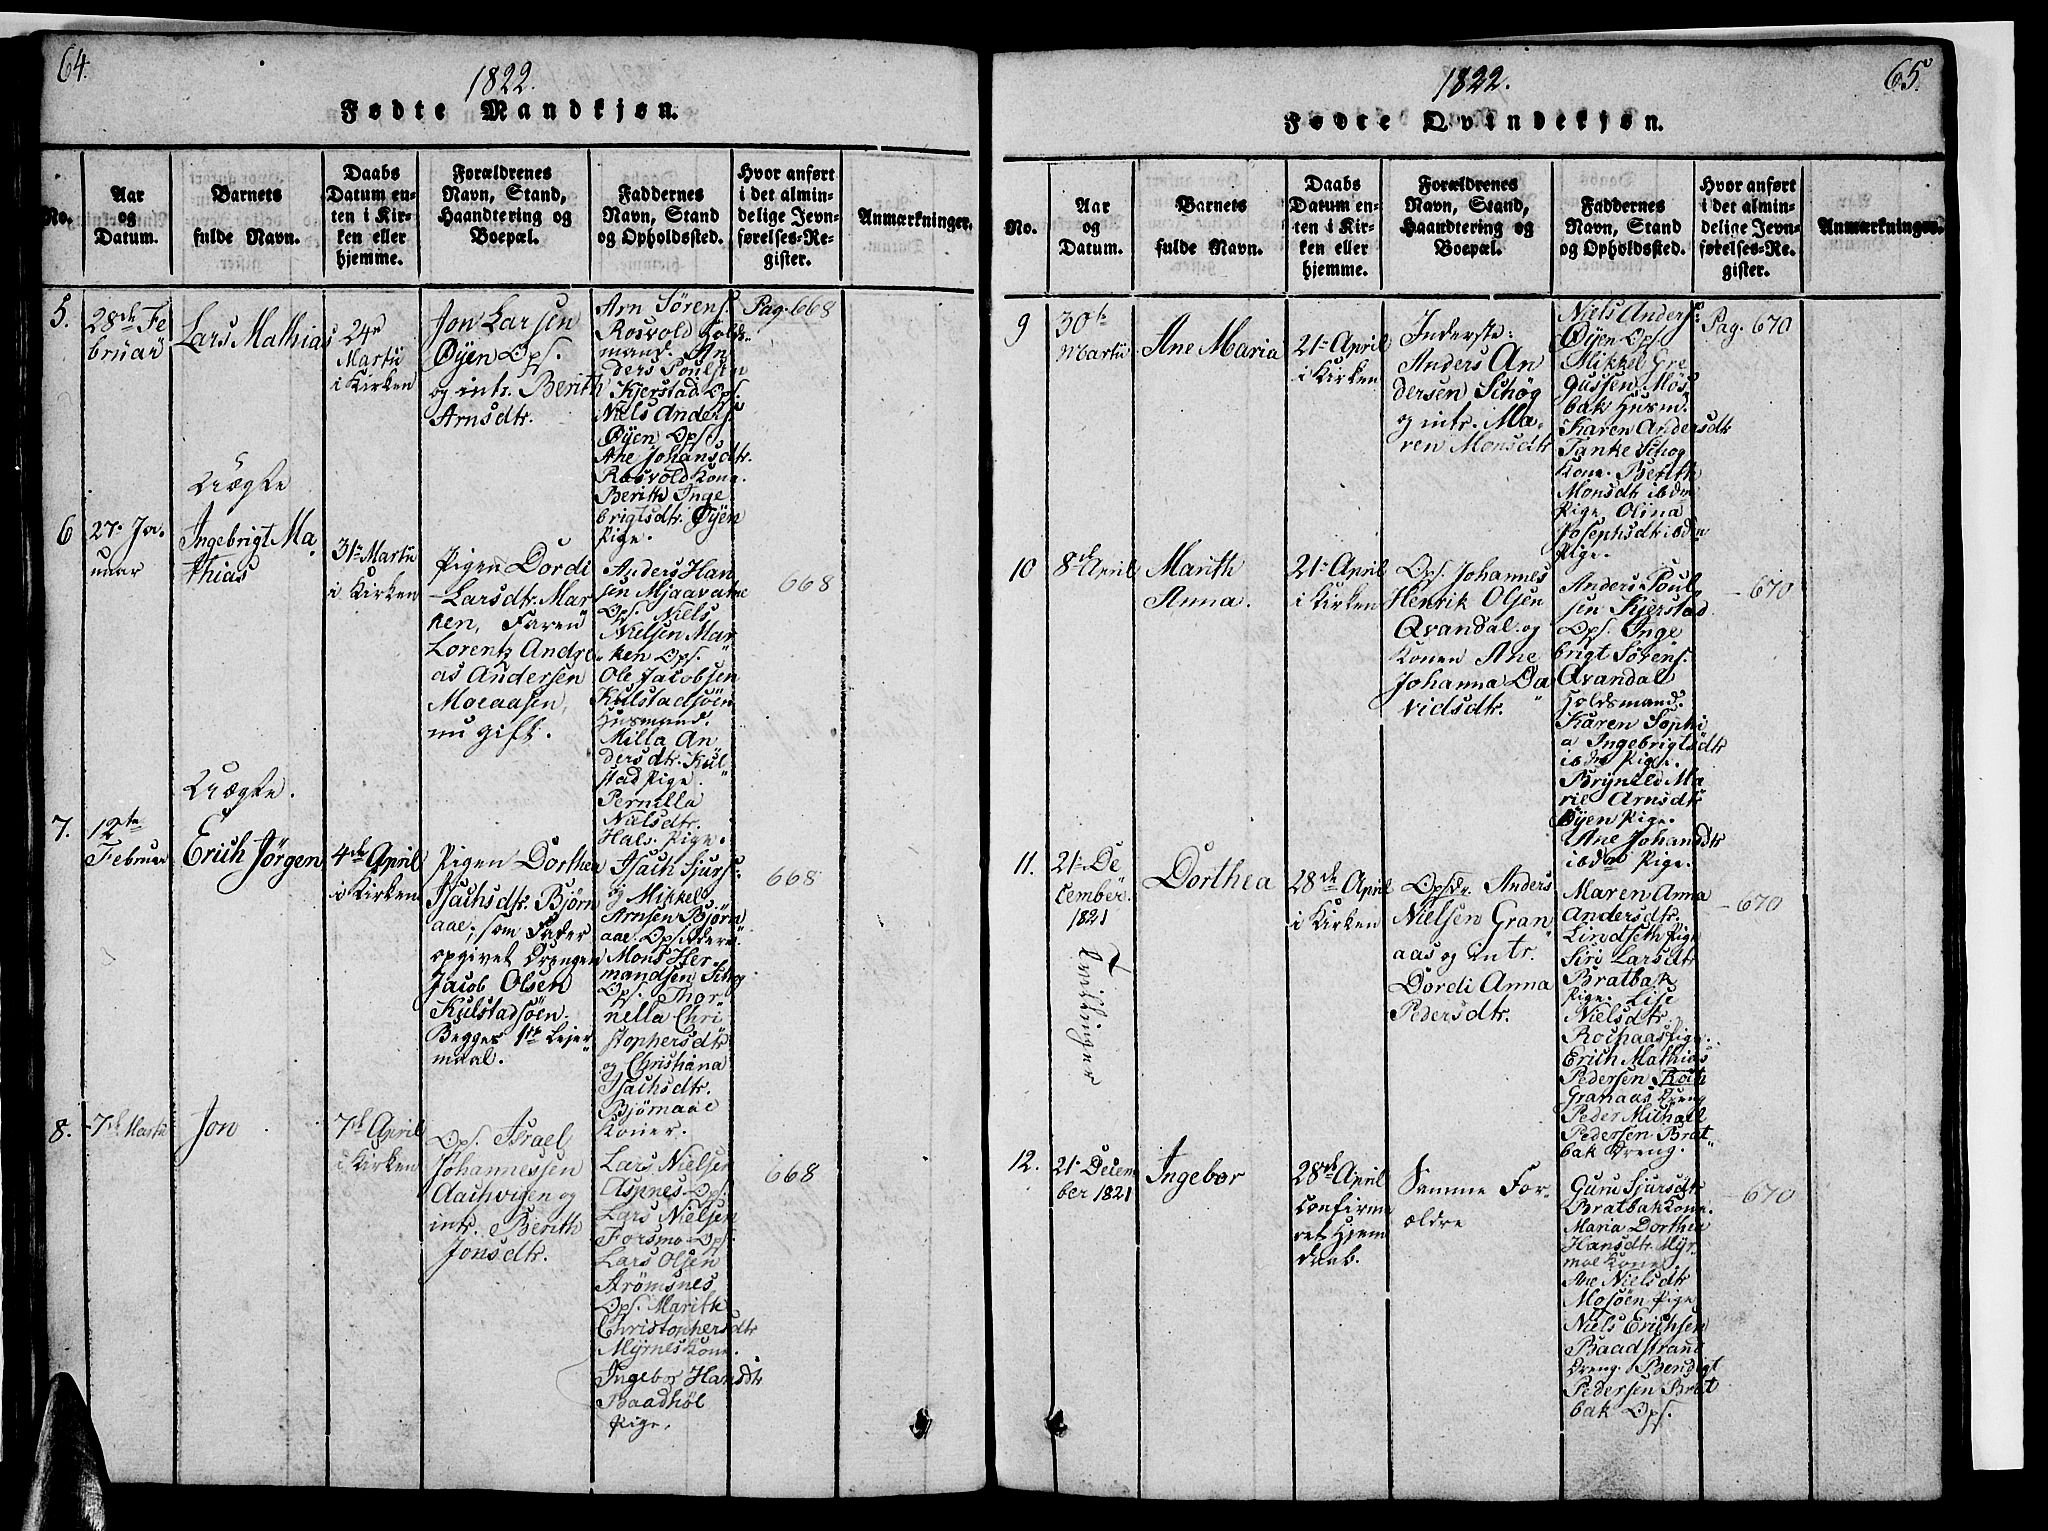 64.
1822.
Fødte Mandkjøn.
No.
Aar
og
Datum.
Barnets
fulde Navn.
Daabs
Datum en-
ten i Kir-
ken eller
hjemme.
Forældrenes
Navn, Stand,
Haandtering og
Boepæl.
Faddernes
Navn, Stand
og Opholdssted.
Hvor anført
i det almin-
delige Jevn-
førelses-Re-
gister.
Anmærkninger.
5.
28de Fe
bruar
Lars Mathias
24de
Martii
i Kirken
Jon Larsen
Øyen Ops.
og intr. Berith
Arnsdtr.
Arn Sørens.
Rosvold Hold-
mand. An
ders Poulsen
Kjerstad Ops.
Niels Anders.
Øyen Ops.
Ane Johansdtr.
Rosvold Kone.
Berith Inge
brigtsdtr. Øyen
Pige.
Pag. 668
Uægte
6
27. Ja-
nuar
Ingebrigt Ma-
thias
31te Martii
i Kirken
Pigen Dordi
Larsdtr. Mar
ken, Faren
Lorentz Andre
as Andersen
Moeaasen,
nu gift.
Anders Han
sen Mjaavatne
Ops. Niels
Nielsen Mar
ken Ops.
Ole Jacobsen
Kulstadsjøen
Husmand.
Milla An
dersdtr. Kul
stad Pige.
Pernilla
Nielsdtr.
Hals. Pige.
668
Uægte.
7.
12te
Februar
Erich Jørgen
4de April
i Kirken
Pigen Dorthea
Isachsdtr. Bjørn
aae; som Fader
opgivet Drengen
Jacob Olsen
Kulstadsjøen.
Begges 1te Lejer
maal.
Isach Sjurs.
og Mikkel
Arnsen Bjørn
aae. Opsiddere.
Mons Her-
mandsen Skog
Ops. Thor-
nella Chri
stophersdtr.
og Christiana
Isachsdtr.
Bjørnaae
Koner.
668
8.
7de Martii
Jon
7de April
i Kirken
Ops. Israel
Johannessen
Aachvigen og
intr. Berith
Jonsdtr.
Lars Nielsen
Aspnes Ops.
Lars Nielsen
Forsmo Ops.
Lars Olsen
Strømsnes
Ops. Marith
Christophersdtr.
Myrnes Kone.
Ingebor Hansdtr
Baadhøl
Pige.
668
65.
1822.
Fødte Qvindekjøn.
No.
Aar
og
Datum.
Barnets
fulde Navn.
Daabs
Datum en-
ten i Kir-
ken eller
hjemme.
Forældrenes
Navn, Stand,
Haandtering og
Boepæl.
Faddernes
Navn, Stand
og Opholdssted.
Hvor anført
i det almin-
delige Jevn-
førelses-Re-
gister.
Anmærkninger.
9
30te
Martii
Ane Maria
21de April
i Kirken
Inderste:
Anders An
dersen Schog
og intr. Ma-
ren Monsdtr
Niels Anders.
Øyen Ops.
Mikkel Gre
gussen Mos
bak Husm.
Karen Andersdtr
Tanke Schog
Kone. Berith
Monsdtr ibdm
Pige. Olina
Josephsdtr ibdm
Pige.
Pag. 670
10
8de April
Marith
Anna.
21de April
i Kirken
Ops. Johannes
Henrik Olsen
Qvandal og
Konen Ane
Johanna Da
vidsdtr.
Anders Poul
sen Kjerstad
Ops. Inge
brigt Sørens.
Qvandal
Holdsmand.
Karen Sophi
a Ingebrigtsdtr
ibdm Pige.
Brynild Ma
rie Arnsdtr
Øyen Pige.
Ane Johansdtr
ibdm Pige.
670
11.
21de De
cember.
1821
Tvillinger
Dorthea
28de April
i Kirken
Opsdr. Anders
Nielsen Gran
aas og intr.
Dordi Anna
Pedersdtr.
Maren Anna
Andersdtr.
Lindseth Pige
Siri Larsdtr
Bratbak
Pige. Lise
Nielsdtr.
Rochaas Pige.
Erich Mathias
Pedersen Roch
Granaas Dreng
Peder Michael
Pedersen Brat
bak Dreng.
670
12.
21de Decem
ber 1821
Ingebor
28de April
confirme
ret Hjem
daab.
Samme For-
ældre
Guru Sjursdtr
Bratbak Kone.
Maria Dorthea
Hansdtr. Myr
moe Kone.
Ane Nielsdtr
Mosjøen Pige
Niels Erichsen
Baadstrand
Dreng. Bendigt
Pedersen Brat
bak Ops.
670